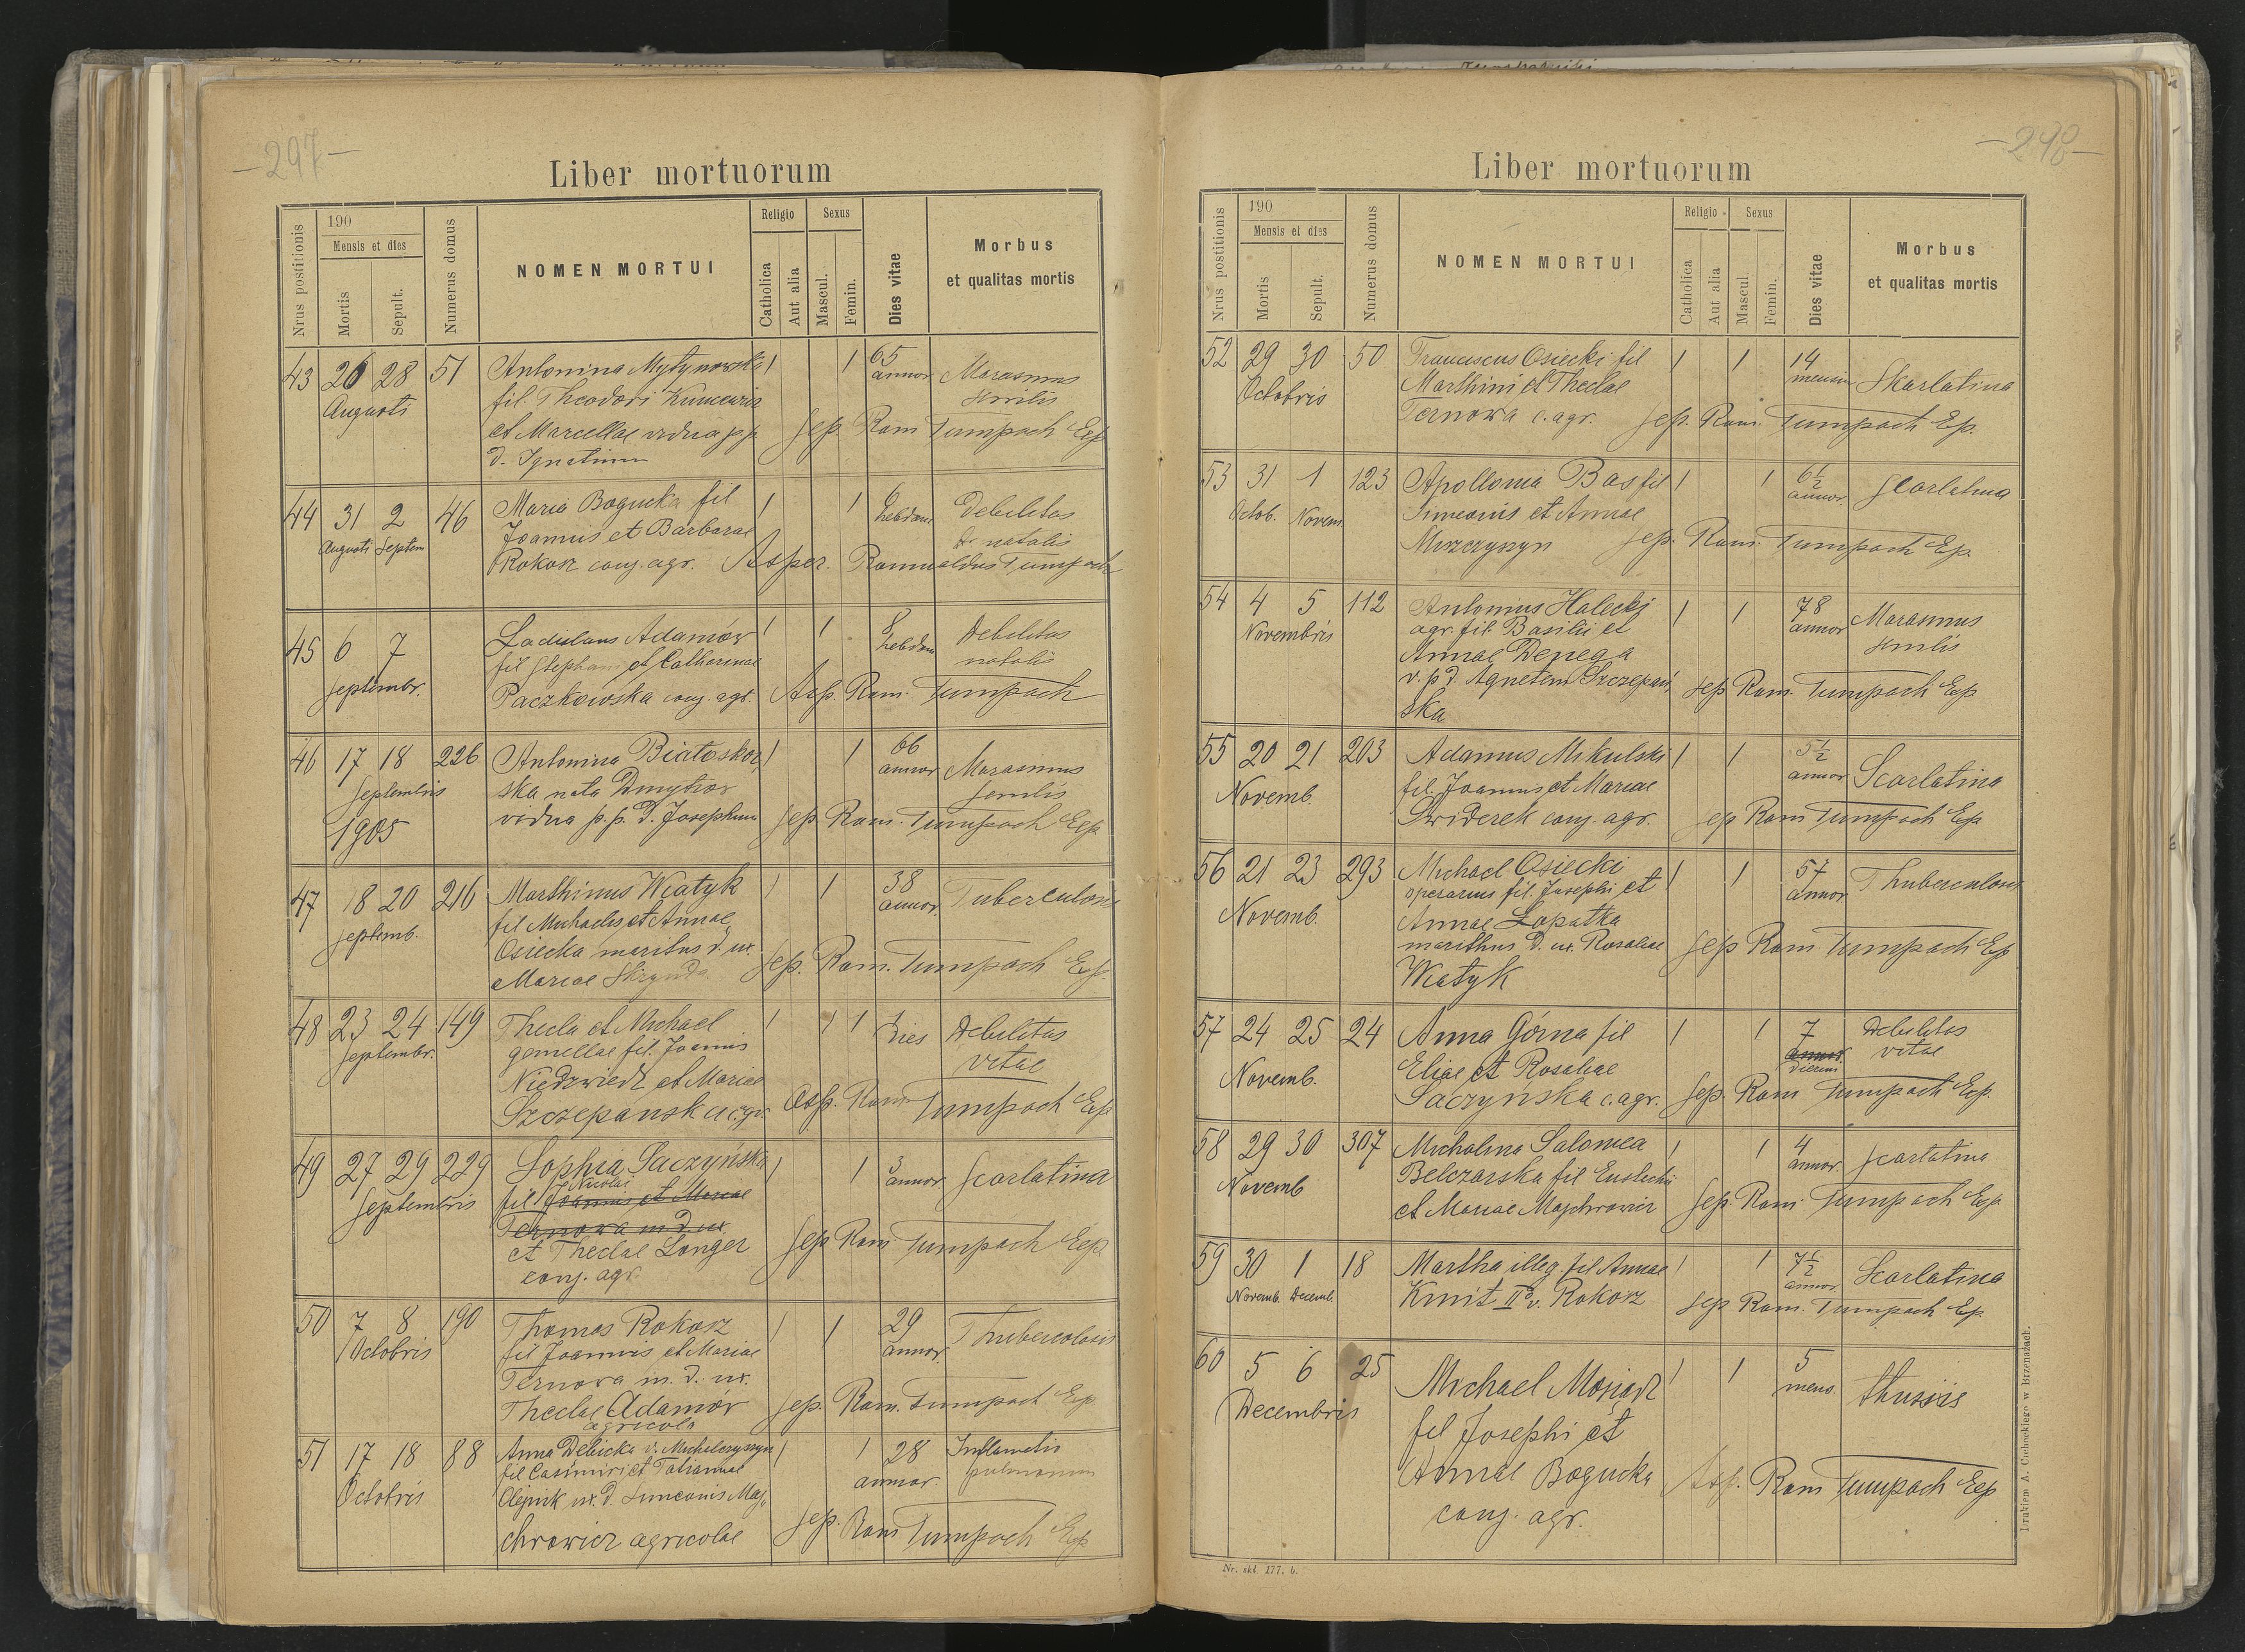 297
Liber mortuorum
Nrus postitionis
190
Mensis et dies
Mortis
Sepult.
Numerus domus
NOMEN MORTUI
Religio
Catholica
Aut alia
Sexus
Mascul.
Femin.
Dies vitae
Morbus
et qualitas mortis
43 26 28 51 Antonina Mytynowska 1 1 65
Augusti fil. Theodori Kuncewicz annor Marasmus
senilis
et Marcellae vidua p. p. Sep. Rom Tumpach Exp
d. Ignatium
44 31 2 46 Maria Bogucka fil 1 1 6 Debilitas
Augusti Septem Joannis et Barbarae hebdom natalis
Rokosz conj. agr. Asper. Romualdus Tumpach
45 6 7 Ladislaus Adamów 1 1 8 Debilitas
Septembr. fil Stephani et Catharinae hebdom natalis
Paczkowska conj. agr. Asp. Rom. Tumpach
46 17 18 226 Antonina Białoskor 1 1 66
Septembris ska nata Dmytrow annor Marasmus
senilis
1905 vidua p. p. d. Josephum Sep. Rom. Tumpach Exp
47 18 20 216 Marthinus Wiatyk 1 1 38 Tuberculosis
Septemb. fil Michaelis et Annae annor.
Osiecka maritus d. ux. Sep. Rom. Tumpach Exp.
Mariae Skrynda
48 23 24 149 Thecla et Michael 1 1 1 1 Debilitas
Septembr. gemellae fil. Joannis dies vitae
Niedzwiedz et Mariae
Szczepanska c. agr. Asp. Rom Tumpach Exp
49 27 29 229 Sophia Saczyńska 1 1 3 Scarlatina
Septembris fil Nicolai Joannis et Mariae annor
Ternowa m d ux
et Theclae Longer Sep Rom Tumpach Exp.
conj. agr.
50 7 8 190 Thomas Rokosz 1 1 29 Thuberculosis
Octobris fil Joannis et Mariae annor.
Ternova m. d. ux.
Theclae Adamów Sep. Rom. Tumpach Exp.
agricola
51 17 18 88 Anna Debicka v. Michalczyszyn 1 1 28 Inflamatio
Octobris fil Casimiri et Tatiannae annor. pulmonum
Olejnik ux. d. Simeonis Maj
chrowicz agricolae Sep. Rom Tumpach Exp
298
Liber mortuorum
Nrus postitionis
190
Mensis et dies
Mortis
Sepult.
Numerus domus
NOMEN MORTUI
Religio
Catholica
Aut alia
Sexus
Mascul
Femin.
Dies vitae
Morbus
et qualitas mortis
52 29 30 50 Franciscus Osiecki fil 1 1 14
Octobris Marthini et Theclae mensium Skarlatina
Ternowa c. agr. Sep. Rom. Tumpach Exp.
53 31 1 123 Apollonia Bas fil 1 1 6½ Scarlatina
Octob. Novem Simeonis et Annae annor.
Miszczyszyn Sep. Rom. Tumpach Exp
54 4 5 112 Antonius Halecki 1 1 78 Marasmus
Novembris agr. fil. Basilii et annor senilis
Annae Denega
v. p. d. Agnetem Szczepań Sep Rom. Tumpach Exp
ska
55 20 21 203 Adamus Mikulski 1 1 5½ Scarlatina
Novemb. fil. Joannis et Mariae annor
Swiderek conj. agr. Sep Rom Tumpach Exp
56 21 23 293 Michael Osiecki 1 1 57 Thuberculosis
Novemb. operarius fil. Josephi et annor
Annae Łopatka
marithus d. ux. Rosaliae Sep Rom Tumpach Exp
Wiatyk
57 24 25 24 Anna Górna fil 1 1 7 Debilitas
Novemb. Eliae et Rosaliae annor. dierum vitae
Saczynska c. agr. Sep. Rom Tumpach Exp.
58 29 30 307 Michalina Salomea 1 1 4 Scarlatina
Novemb Belczarska fil Eustachii annor
et Mariae Majchrowicz Sep. Rom. Tumpach Exp
59 30 1 18 Martha illeg fil Annae 1 1 7½ Scarlatina
Novemb. Decemb. Kmit II v. Rokosz annor. Sep Rom. Tumpach Exp.
60 5 6 25 Michael Mosiądz 1 1 5 thussis
Decembris fil Josephi et mens.
Annae Bogucka Asp. Rom Tumpach Exp
conj. agr.
Nr. skł. 177. b.
Drukiem A. Cichockiego w Brzeżanach.